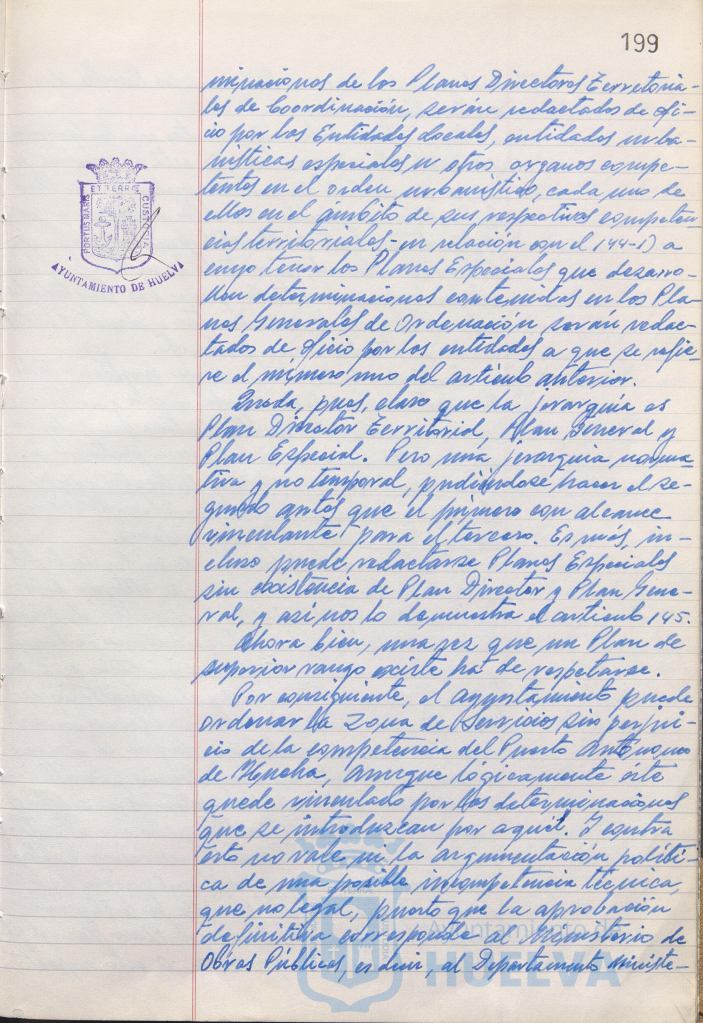 199
minaciones de los Planes Directores Territoria-
les de Coordinación, serán redactados de ofi-
cio por las Entidades Locales, entidades urba-
nísticas especiales u otros organos compe-
tentes en el orden urbanístico, cada uno de
ellos en el ámbito de sus respectivas competen-
cias territoriales - en relación con el 144-1) a
cuyo tenor los Planes Especiales que desarro-
llen determinaciones contenidas en los Pla-
nes Generales de Ordenación serán redac-
tados de oficio por las entidades a que se refie-
re el número uno del artículo anterior.
Queda, pues, claro que la jerarquía es
Plan Director Territorial, Plan General y
Plan Especial. Pero una jerarquía norma-
tiva y no temporal, pudiéndose hacer el se-
gundo antes que el primero con alcance
vinculante para el tercero. Es más, in-
cluso puede redactarse Planes Especiales
sin existencia de Plan Director y Plan Gene-
ral, y así nos lo demuestra el artículo 145.
Ahora bien, una vez que un Plan de
superior rango existe ha de respetarse.
Por consiguiente, el ayuntamiento puede
ordenar la Zona de Servicios sin perjui-
cio de la competencia del Puerto Autónomo
de Huelva, aunque lógicamente éste
quede vinculado por las determinaciones
que se introduzcan por aquel. Y contra
esto no vale ni la argumentación políti-
ca de una posible incompetencia técnica,
que no legal, puesto que la aprobación
definitiva corresponde al Ministerio de
Obras Públicas, es decir, al Departamento ministe-
PORTUS MARIS ET TERRE CUSTODIA
AYUNTAMIENTO DE HUELVA
Ayuntamiento de
HUELVA